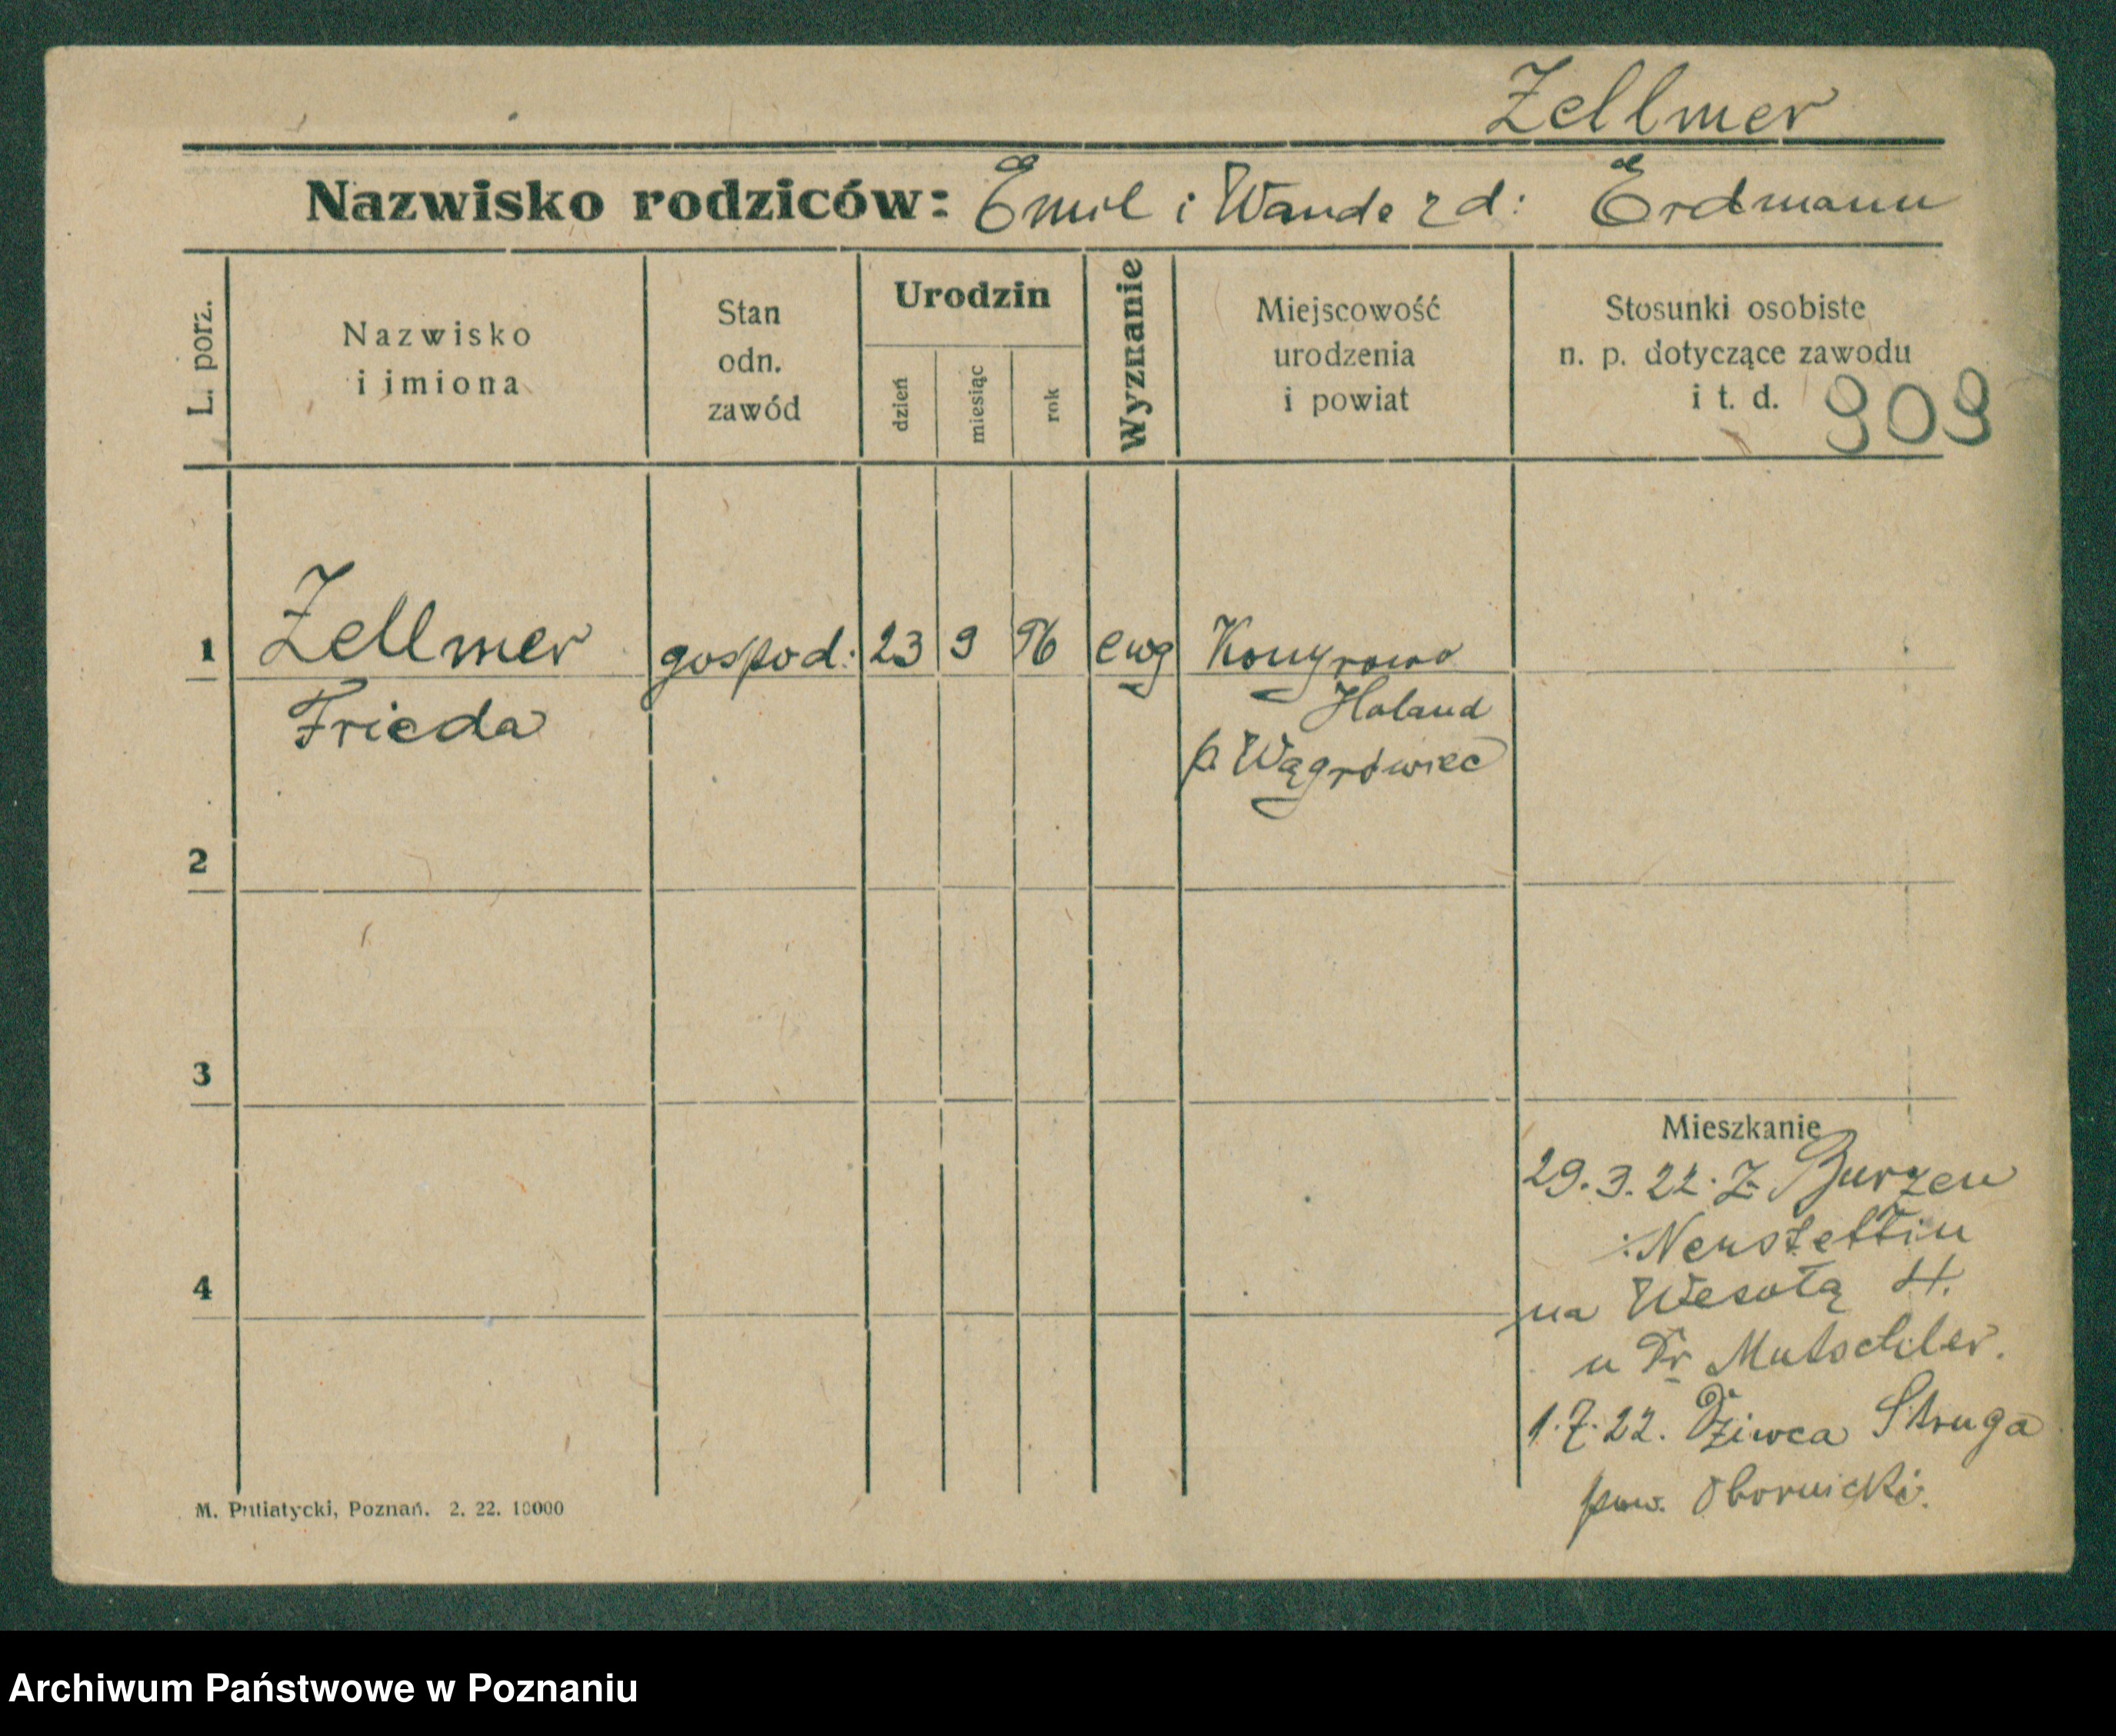 Zellmer
Nazwisko rodziców: Emil i Wanda z d: Erdmann
L. porz.
Nazwisko
i imiona
Stan
odn.
zawód
Urodzin
dzień
miesiąc
rok
Wyznanie
Miejscowość
urodzenia
i powiat
Stosunki osobiste
n. p. dotyczące zawodu
i t. d.
909
1 Zellmer gospod. 23 9 96 ewg
Frieda
Holand
p. Wągrówiec
2
3
4
Mieszkanie
29.3.22. Z Burzen
Neustettin
na Wesołą 4.
u Dr Mutschler.
1.7.22. Dziwca Struga
pow. Obornicki.
M. Putiatycki, Poznań. 2. 22. 10000
Archiwum Państwowe w Poznaniu